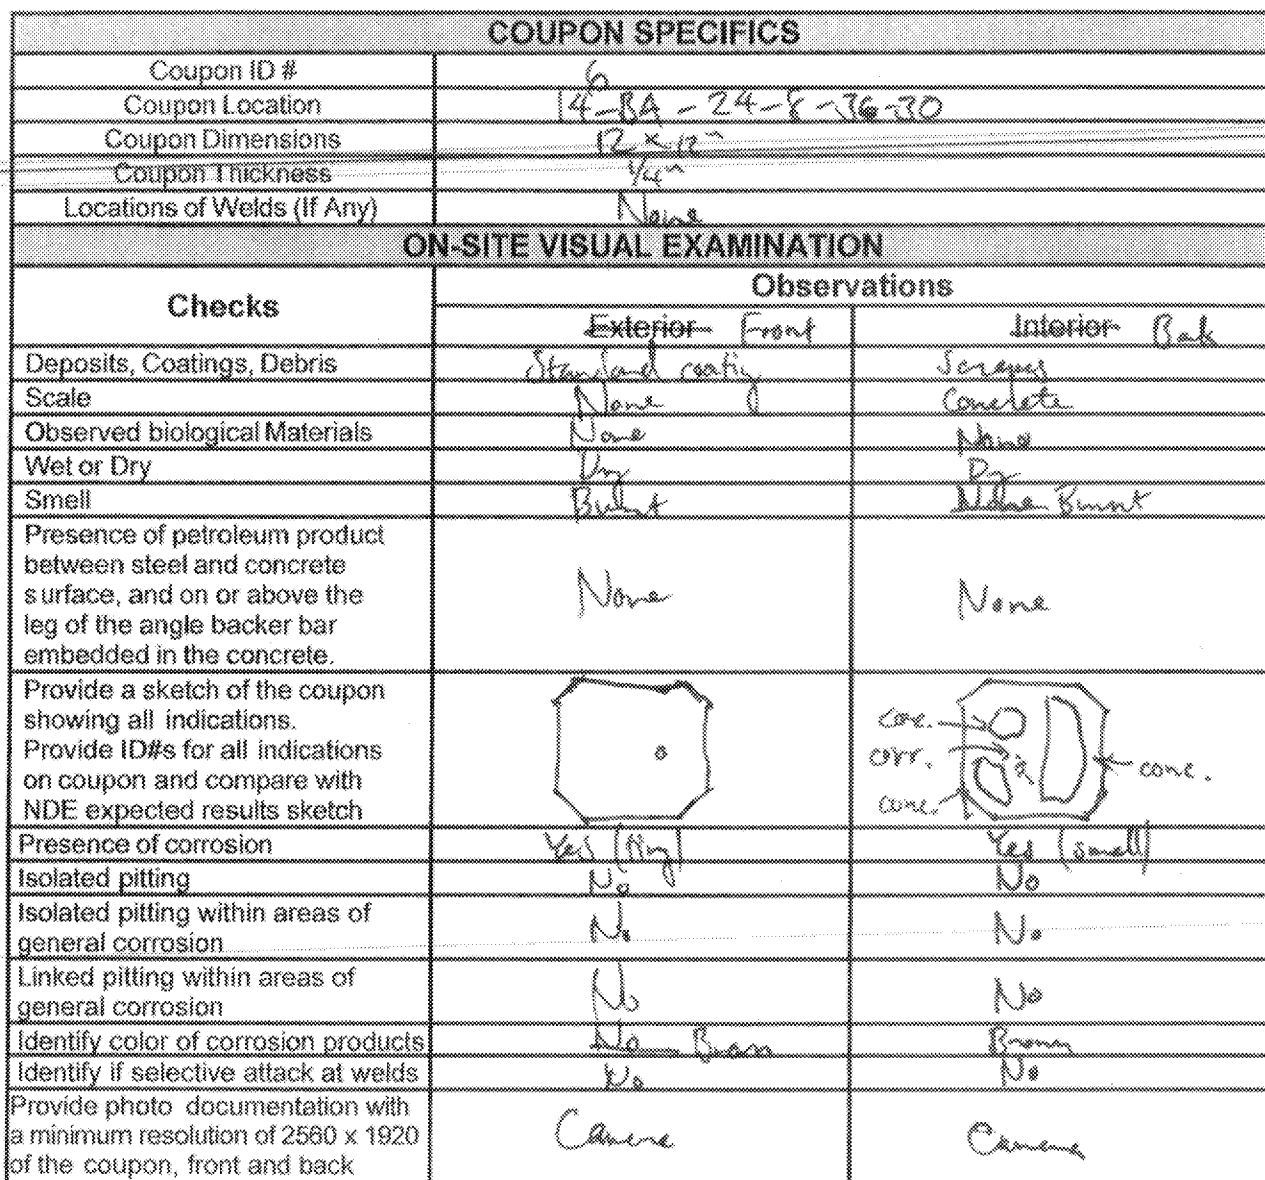 COUPON SPECIFICS
Coupon ID # 6
Coupon Location 14-BA-24-8-36-30
Coupon Dimensions 12 x 12"
Coupon Thickness 1/4"
Locations of Welds (If Any) None
ON-SITE VISUAL EXAMINATION
Checks Observations
Exterior Front Interior Back
Deposits, Coatings, Debris Standard coating
Scale None Concrete
Observed biological Materials None None
Wet or Dry Dry Dry
Smell Burnt None Burnt
Presence of petroleum product
between steel and concrete
surface, and on or above the
leg of the angle backer bar
embedded in the concrete.
None None
Provide a sketch of the coupon
showing all indications.
Provide ID#s for all indications
on coupon and compare with
NDE expected results sketch
conc.
corr.
conc.
conc.
Presence of corrosion Yes (tiny) Yes (small)
Isolated pitting No No
Isolated pitting within areas of
general corrosion No No
Linked pitting within areas of
general corrosion No No
Identify color of corrosion products No Brown Brown
Identify if selective attack at welds No No
Provide photo documentation with
a minimum resolution of 2560 x 1920
of the coupon, front and back
Camera Camera